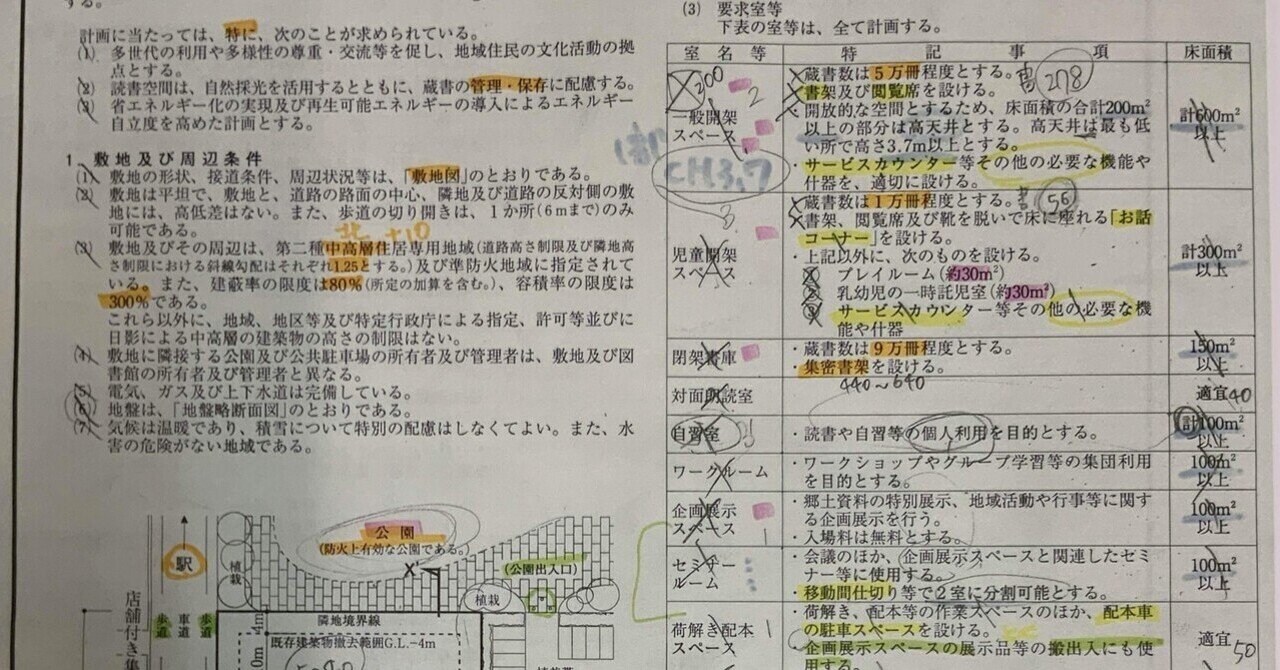 する。
計画に当たっては、特に、次のことが求められている。
(1) 多世代の利用や多様性の尊重・交流等を促し、地域住民の文化活動の拠
点とする。
(2) 読書空間は、自然採光を活用するとともに、蔵書の管理・保存に配慮する。
(3) 省エネルギー化の実現及び再生可能エネルギーの導入によるエネルギー
自立度を高めた計画とする。
1. 敷地及び周辺条件
(1) 敷地の形状、接道条件、周辺状況等は、「敷地図」のとおりである。
(2) 敷地は平坦で、敷地と、道路の路面の中心、隣地及び道路の反対側の敷
地には、高低差はない。また、歩道の切り開きは、1か所(6mまで)のみ
可能である。
北 +10
(3) 敷地及びその周辺は、第二種中高層住居専用地域(道路高さ制限及び隣地高
さ制限における斜線勾配はそれぞれ1.25とする。)及び準防火地域に指定されて
いる。また、建蔽率の限度は80%(所定の加算を含む。)、容積率の限度は
300%である。
これら以外に、地域、地区等及び特定行政庁による指定、許可等並びに
日影による中高層の建築物の高さの制限はない。
(4) 敷地に隣接する公園及び公共駐車場の所有者及び管理者は、敷地及び図
書館の所有者及び管理者と異なる。
(5) 電気、ガス及び上下水道は完備している。
(6) 地盤は、「地盤略断面図」のとおりである。
(7) 気候は温暖であり、積雪について特別の配慮はしなくてよい。また、水
害の危険がない地域である。
公園
(防火上有効な公園である。)
駅
植栽
X'
(公園出入口)
植栽
店舗付き集
歩道
車道
歩道
4m
隣地境界線
既存建築物撤去範囲G.L.-4m
(3) 要求室等
下表の室等は、全て計画する。
室名等 特記事項 床面積
200
2
一般開架
スペース
CH3.7
・蔵書数は5万冊程度とする。
278
・書架及び閲覧席を設ける。
・開放的な空間とするため、床面積の合計200m²
以上の部分は高天井とする。高天井は最も低
い所で高さ3.7m以上とする。
・サービスカウンター等その他の必要な機能や
什器を、適切に設ける。
計600m²
以上
3
児童開架
スペース
・蔵書数は1万冊程度とする。
56
・書架、閲覧席及び靴を脱いで床に座れる「お話
コーナー」を設ける。
・上記以外に、次のものを設ける。
① プレイルーム(約30m²)
② 乳幼児の一時託児室(約30m²)
③ サービスカウンター等その他の必要な機
能や什器
計300m²
以上
閉架書庫
・蔵書数は9万冊程度とする。
・集密書架を設ける。
150m²
以上
440~640
対面朗読室
適宜 40
自習室
・読書や自習等の個人利用を目的とする。
計100m²
以上
ワークルーム
・ワークショップやグループ学習等の集団利用
を目的とする。
100m²
以上
企画展示
スペース
・郷土資料の特別展示、地域活動や行事等に関す
る企画展示を行う。
・入場料は無料とする。
100m²
以上
セミナー
ルーム
・会議のほか、企画展示スペースと関連したセミ
ナー等に使用する。
・移動間仕切り等で2室に分割可能とする。
100m²
以上
荷解き配本
・荷解き、配本等の作業スペースのほか、配本車
の駐車スペースを設ける。
・企画展示スペースの展示品等の搬出入にも使
用する。
適宜
50